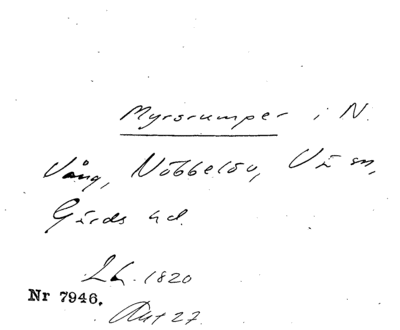 Myrorumper i N.
Vång, Nöbbelöv, Vä sn,
Gärds hd.
Lh. 1820
Nr 7946.
Akt 27